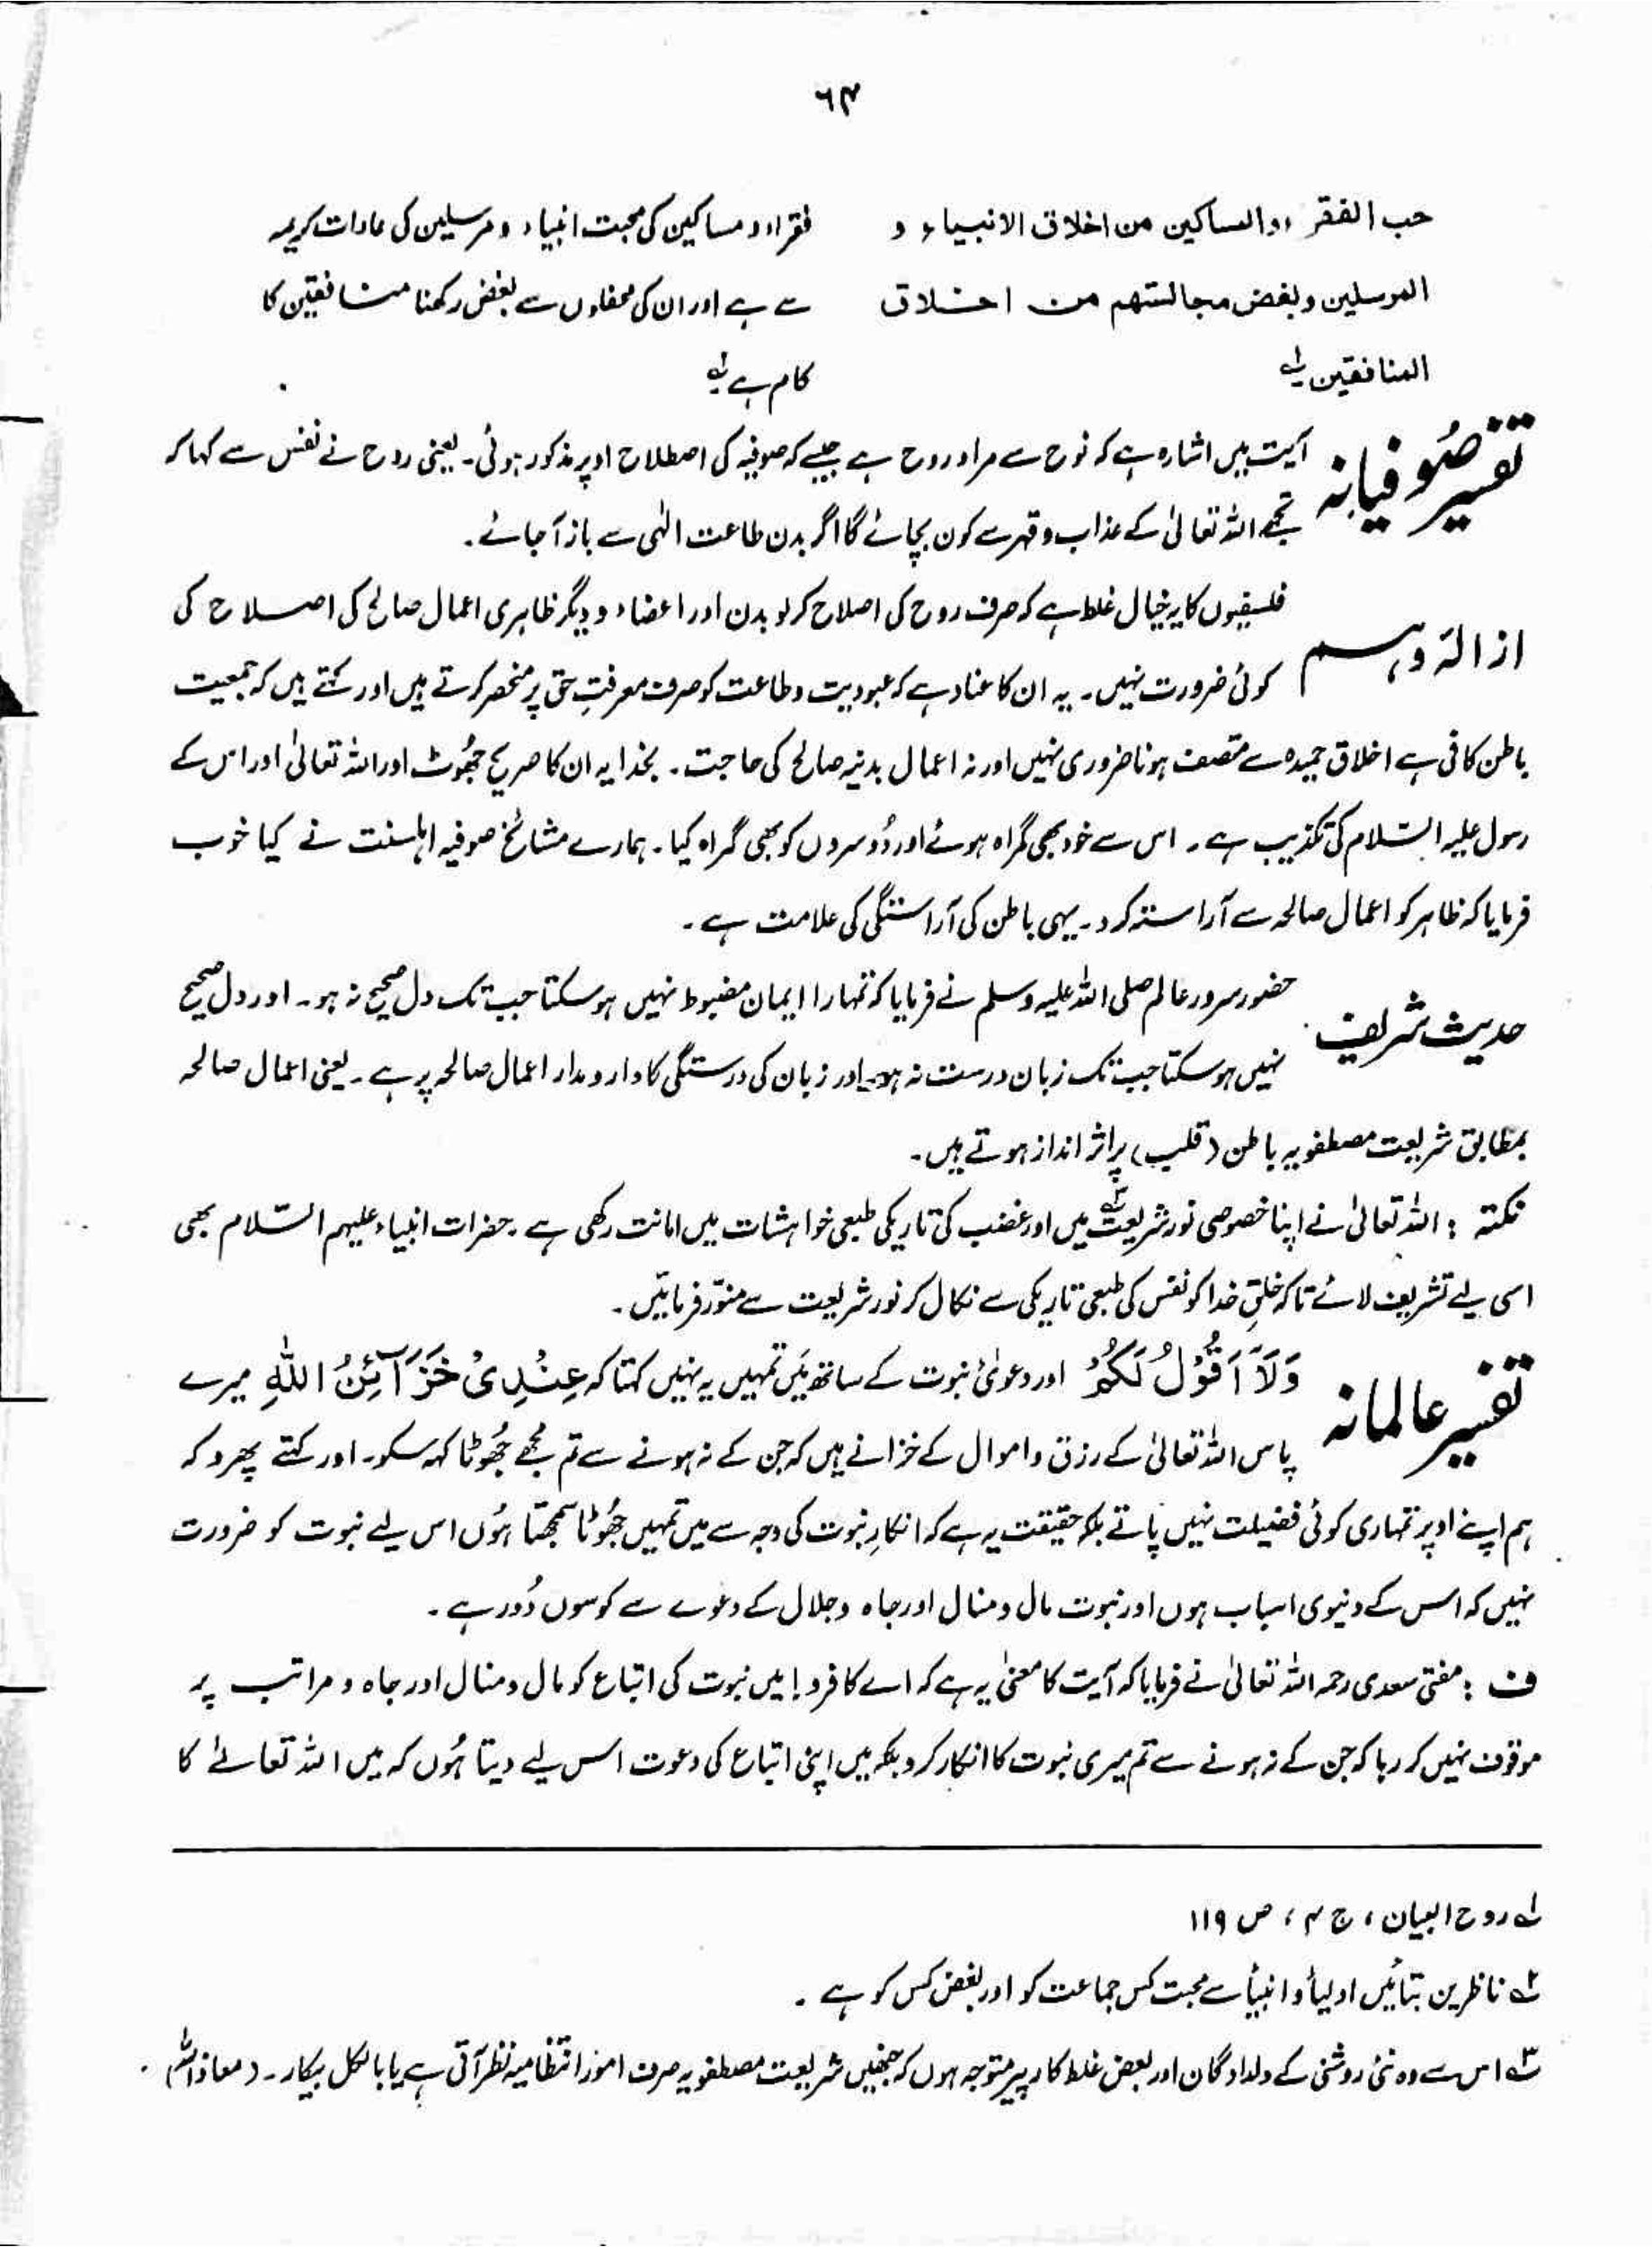 ۶۴
حب الفقراء والمساکین من اخلاق الانبیاء و
المرسلین وبغض مجالستھم من اخلاق
المنافقین لے
فقراء و مساکین کی محبت انبیاء و مرسلین کی عادات کریمہ
سے ہے اور ان کی محفلوں سے بغض رکھنا منافقین کا
کام ہے ۲ے
تفسیر صوفیانہ
آیت میں اشارہ ہے کہ نوح سے مراد روح ہے جیسے کہ صوفیہ کی اصطلاح اوپر مذکور ہوئی۔ یعنی روح نے نفس سے کہا کہ
تجھے اللہ تعالیٰ کے عذاب و قہر سے کون بچائے گا اگر بدن طاعت الٰہی سے باز آ جائے۔
ازالۂ وہم
فلسفیوں کا یہ خیال غلط ہے کہ صرف روح کی اصلاح کر لو بدن اور اعضاء و دیگر ظاہری اعمال صالح کی اصلاح کی
کوئی ضرورت نہیں۔ یہ ان کا عناد ہے کہ عبودیت و طاعت کو صرف معرفتِ حق پر منحصر کرتے ہیں اور کہتے ہیں کہ جمعیت
باطن کافی ہے اخلاق حمیدہ سے متصف ہونا ضروری نہیں اور نہ اعمال بدنیہ صالح کی حاجت۔ بخدا یہ ان کا صریح جُھوٹ اور اللہ تعالیٰ اور اس کے
رسول علیہ السّلام کی تکذیب ہے۔ اس سے خود بھی گمراہ ہوئے اور دُوسروں کو بھی گمراہ کیا۔ ہمارے مشائخ صوفیہ اہلسنت نے کیا خوب
فرمایا کہ ظاہر کو اعمال صالحہ سے آراستہ کرو۔ یہی باطن کی آراستگی کی علامت ہے۔
حدیث شریف
حضور سرور عالم صلی اللہ علیہ وسلم نے فرمایا کہ تمہارا ایمان مضبوط نہیں ہو سکتا جب تک دل صحیح نہ ہو۔ اور دل صحیح
نہیں ہو سکتا جب تک زبان درست نہ ہو۔ اور زبان کی درستگی کا دارومدار اعمال صالحہ پر ہے۔ یعنی اعمال صالحہ
بمطابق شریعت مصطفویہ باطن (قلب) پر اثر انداز ہوتے ہیں۔
نکتہ : اللہ تعالیٰ نے اپنا خصوصی نور شریعت۳ے میں اور غضب کی تاریکی طبعی خواہشات میں امانت رکھی ہے۔ حضرات انبیاء علیہم السّلام بھی
اسی لیے تشریف لائے تاکہ خلقِ خدا کو نفس کی طبعی تاریکی سے نکال کر نور شریعت سے منوّر فرمائیں۔
تفسیر عالمانہ
وَلَآ اَقُوْلُ لَكُمْ اور دعویٰ نبوت کے ساتھ مَیں تمہیں یہ نہیں کہتا کہ عِنْدِیْ خَزَآئِنُ اللّٰہِ میرے
پاس اللہ تعالیٰ کے رزق و اموال کے خزانے ہیں کہ جن کے نہ ہونے سے تم مجھے جُھوٹا کہہ سکو۔ اور کہتے پھرو کہ
ہم اپنے اوپر تمہاری کوئی فضیلت نہیں پاتے بلکہ حقیقت یہ ہے کہ انکارِ نبوت کی وجہ سے میں تمہیں جُھوٹا سمجھتا ہُوں اس لیے نبوت کو ضرورت
نہیں کہ اس کے دنیوی اسباب ہوں اور نبوت مال و منال اور جاہ و جلال کے دعوے سے کوسوں دُور ہے۔
ف : مفتی سعدی رحمہ اللہ تعالیٰ نے فرمایا کہ آیت کا معنیٰ یہ ہے کہ اے کافرو! میں نبوت کی اتباع کو مال و منال اور جاہ و مراتب پر
موقوف نہیں کر رہا کہ جن کے نہ ہونے سے تم میری نبوت کا انکار کرو بلکہ میں اپنی اتباع کی دعوت اس لیے دیتا ہُوں کہ میں اللہ تعالےٰ کا
لے روح البیان ، ج ۴ ، ص ۱۱۹
۲ے ناظرین بتائیں اولیاء و انبیاء سے محبت کس جماعت کو اور بغض کس کو ہے۔
۳ے اس سے وہ نئی روشنی کے دلدادگان اور بعض غلط کار پیر متوجہ ہوں کہ جنھیں شریعت مصطفویہ صرف امور انتظامیہ نظر آتی ہے یا بالکل بیکار۔ (معاذ اللہ)